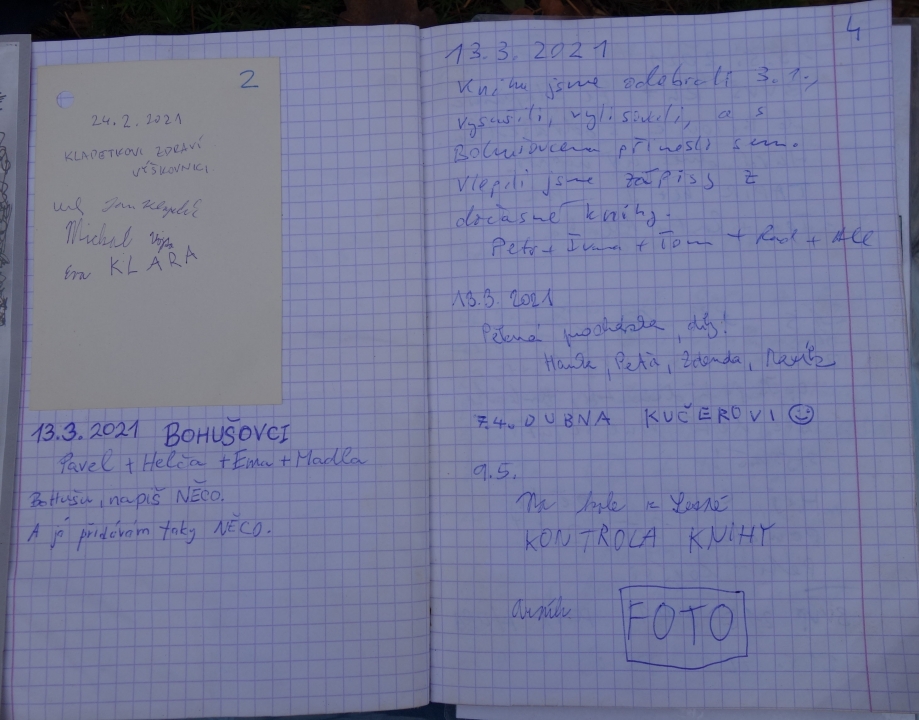 2
24.2.2021
ZDRAVÍ
VÝŠKOVNÍCI
Jan
Michal
Eva KLÁRA
13.3.2021 BOHUŠOVCI
Pavel + Helča + Ema + Madla
Bohušu, napiš NĚCO.
A já přidávám taky NĚCO.
4
13.3.2021
Knihu jsme odebrali 3.1.,
vysušili, vylisovali, a s
Bohušovcema přinesli sem.
Vlepili jsme zápisy z
dočasné knihy.
Petr + Ivana + Tom + Rad + Ale
13.3 2021
Pěkná procházka, díky!
Hanka, Petr, Zdenda,
7.4. DUBNA KUČEROVI ☺
9.5.
Na kole k Lesné
KONTROLA KNIHY
FOTO